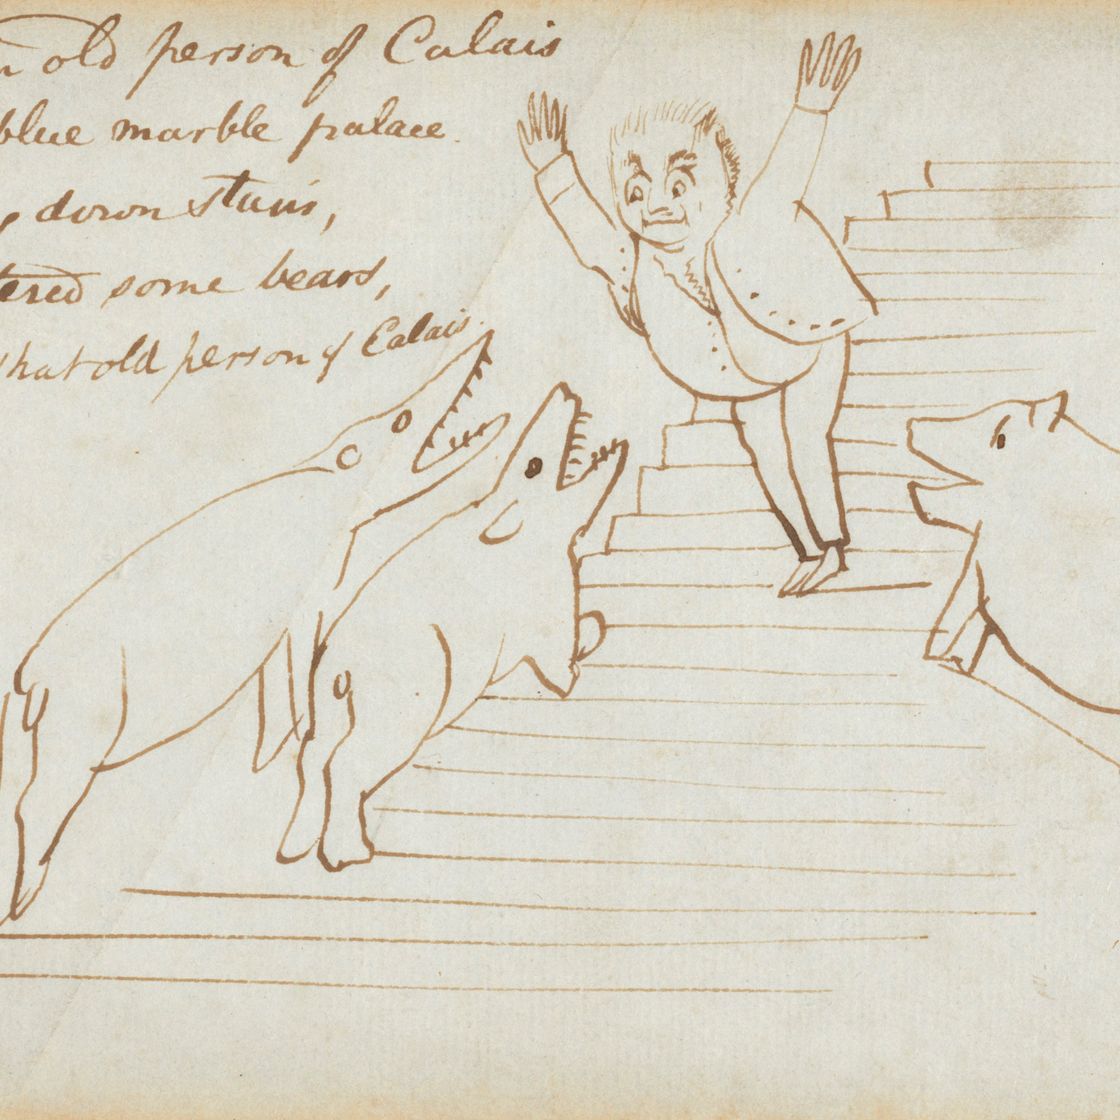 old person of Calais
blue marble palace.
down stairs,
some bears,
that old person of Calais.